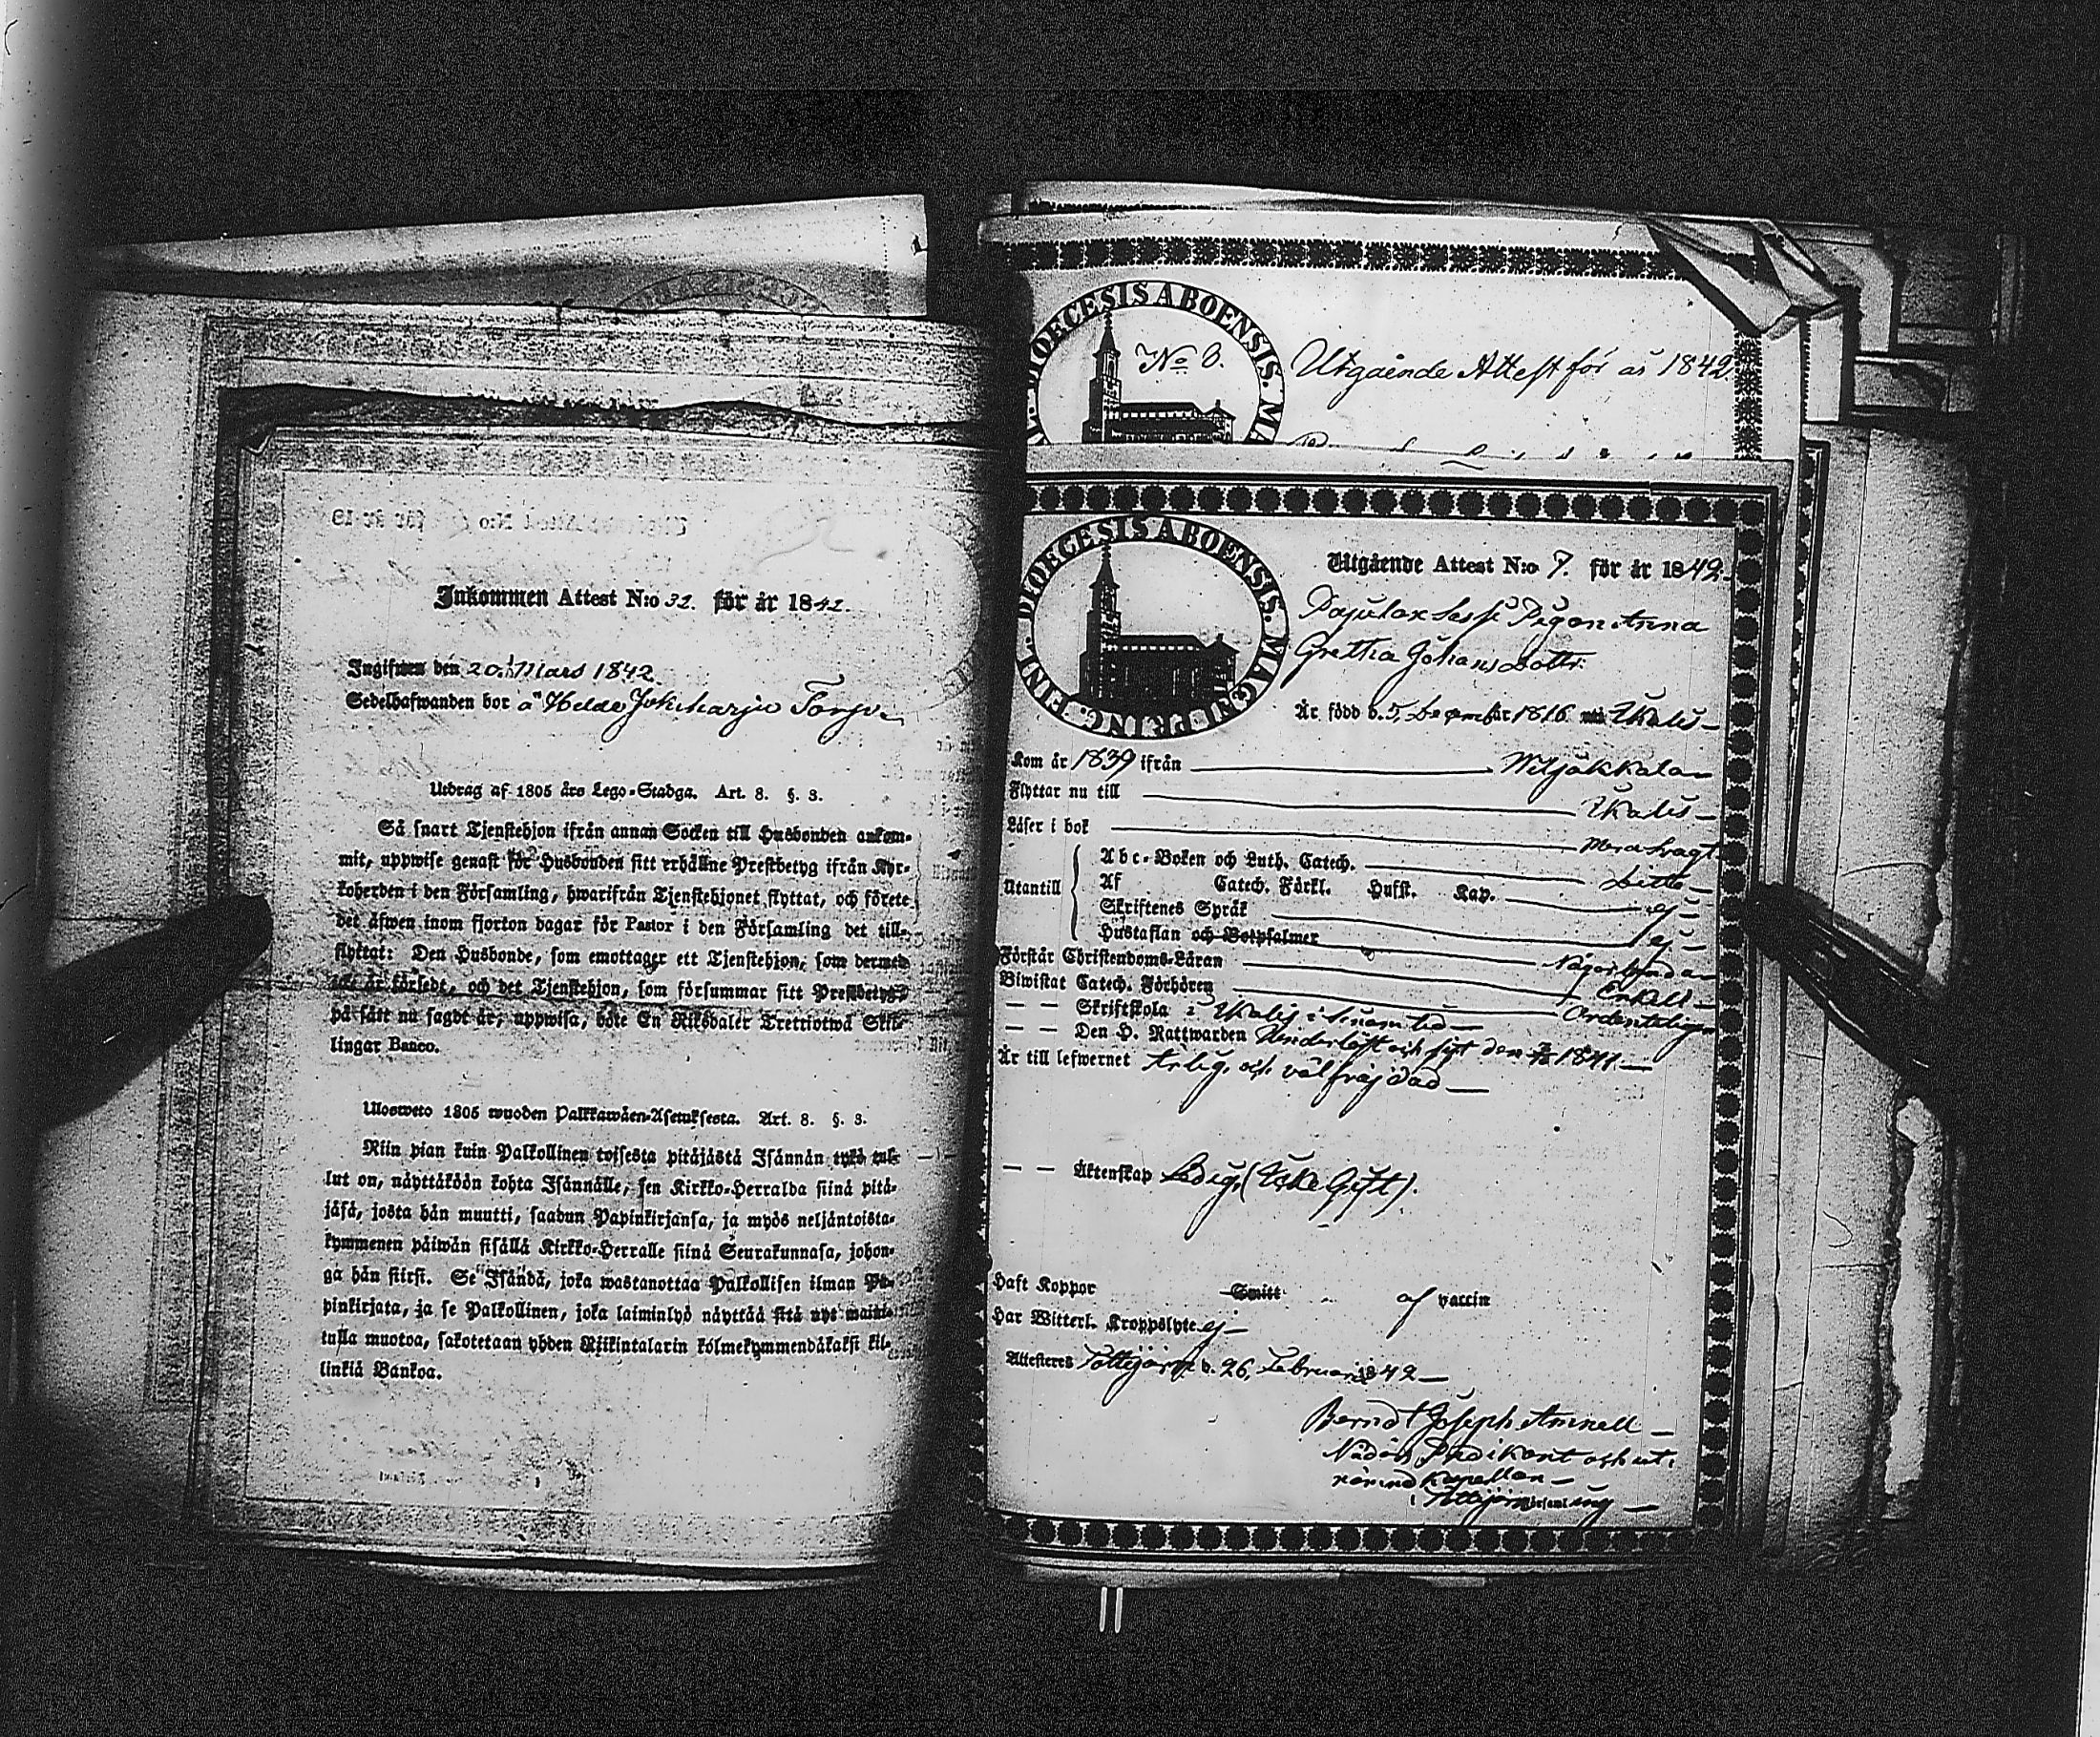 Inkommen Attest N:o 32. för år 1842.
Ingifwen den 20. Mars 1842.
Sedelhafwanden bor å Helde Jokiharju Torp
Utdrag af 1805 års Lego-Stadga. Art. 8. §. 3.
Så snart Tjenstehjon ifrån annan Socken till Husbonden ankom-
mit, uppwise genast för Husbonden sitt erhållne Prestbetyg ifrån Kyr-
koherden i den Församling, hwarifrån Tjenstehjonet flyttat, och förete
det äfwen inom fjorton dagar för Pastor i den Församling det till-
flyttat: Den Husbonde, som emottager ett Tjenstehjon, som dermed
icke är försedt, och det Tjenstehjon, som försummar sitt Prestbetyg
på sätt nu sagdt är, uppwisa, böte En Riksdaler Trettiotwå Skil-
lingar Banco.
Ulosweto 1805 wuoden Palkkawäen-Asetuksesta. Art. 8. §. 3.
Niin pian kuin Palkollinen toisesta pitäjästä Isännän tykö tul-
lut on, näyttäköön kohta Isännälle, sen Kirkko-Herralda siinä pitä-
jäsä, josta hän muutti, saadun Papinkirjansa, ja myös neljäntoista-
kymmenen päiwän sisällä Kirkko-Herralle siinä Seurakunnasa, johon-
ga hän siirsi. Se Isändä, joka wastanottaa Palkollisen ilman Pa-
pinkirjata, ja se Palkollinen, joka laiminlyö näyttää sitä nyt maini-
tulla muotoa, sakotetaan yhden Riikintalarin kolmekymmendäkaksi kil-
linkiä Bankoa.
DIOECESIS ABOENSIS. MA
No 8.
Utgående Attest för år 1842.
DIOECESIS ABOENSIS. MAGNI PRINC. FINL.
Utgående Attest N:o 7. för år 1842.
Pigan Anna
Gretha Johansdotter
Är född d. 5. December 1816 Ikalis
Kom år 1839 ifrån Wiljakkala
Flyttar nu till Ikalis
Läser i bok Mera svagt
Utantill Abc-Boken och Luth. Catech. Ditto
Af Catech. Förkl. Hufst. Kap. ej
Skriftenes Språk ej
Hustaflan och Botpsalmer Någorlunda
Förstår Christendoms-Läran Enkelt
Biwistat Catech. Förhören Ordenteligen
— — Skriftskola i Ikalis i sinom tid
— — Den H. Nattwarden 1841.
Är till lefwernet Ärlig och välfräjdad
— — Äktenskap Ledig, (Icke Gift).
Haft Koppor Smitt af vaccin
Har Witterl. Kroppslyte ej
Attesteras Tottijärvi d. 26. Februari 1842
Berndt Joseph Amnell
Nådårs Predikant och ut-
Kapellan
i Tottijärvi Församling